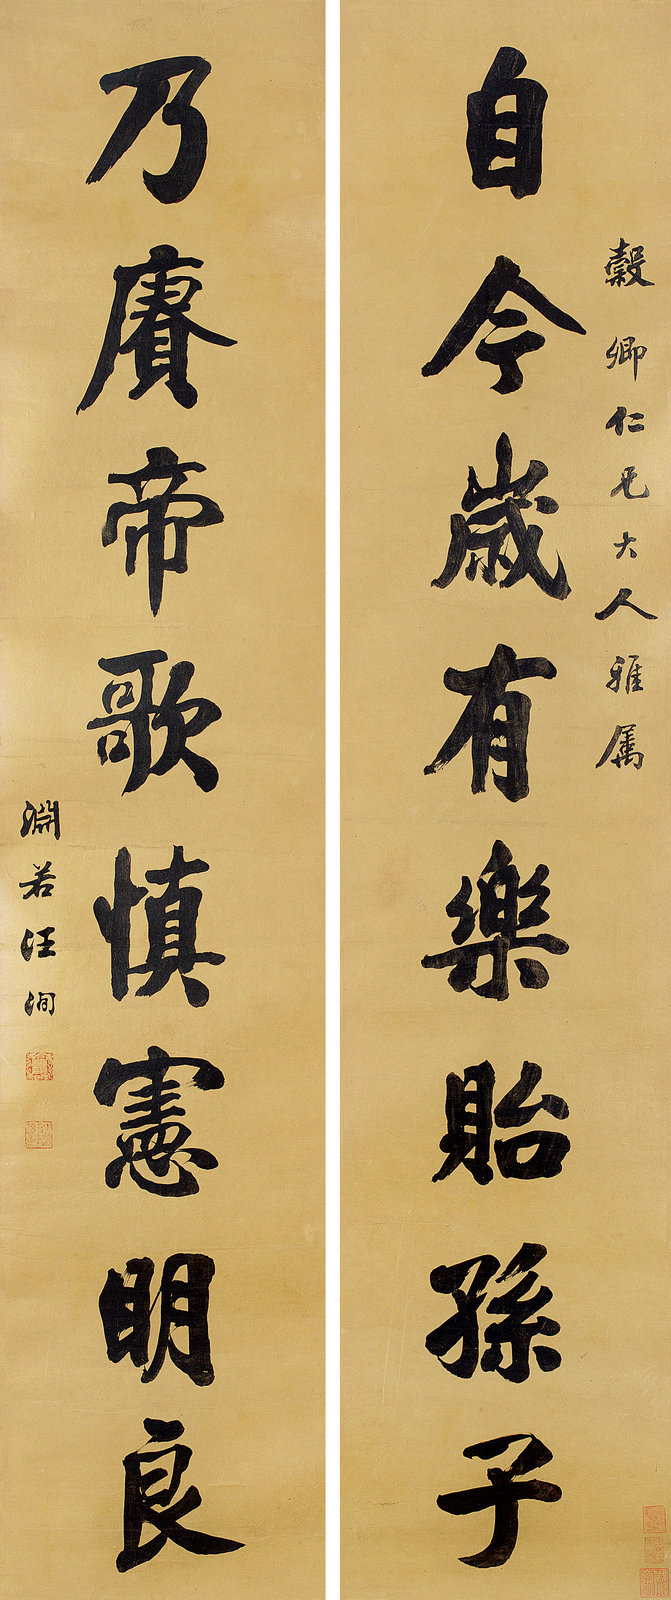 穀卿仁兄大人雅屬
自今歲有樂貽孫子
乃賡帝歌慎憲明良
淵若汪洵